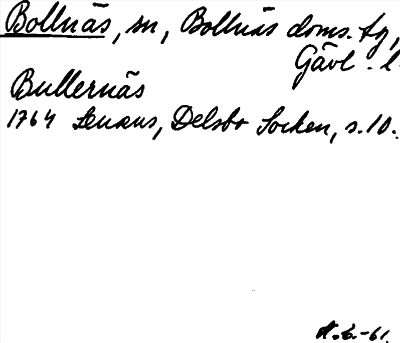 Bollnäs, sn, Bollnäs doms. tg,
Gävl. l.
Bullernäs
1764 Lenæus, Delsbo Socken, s. 10.
H.L.-61.